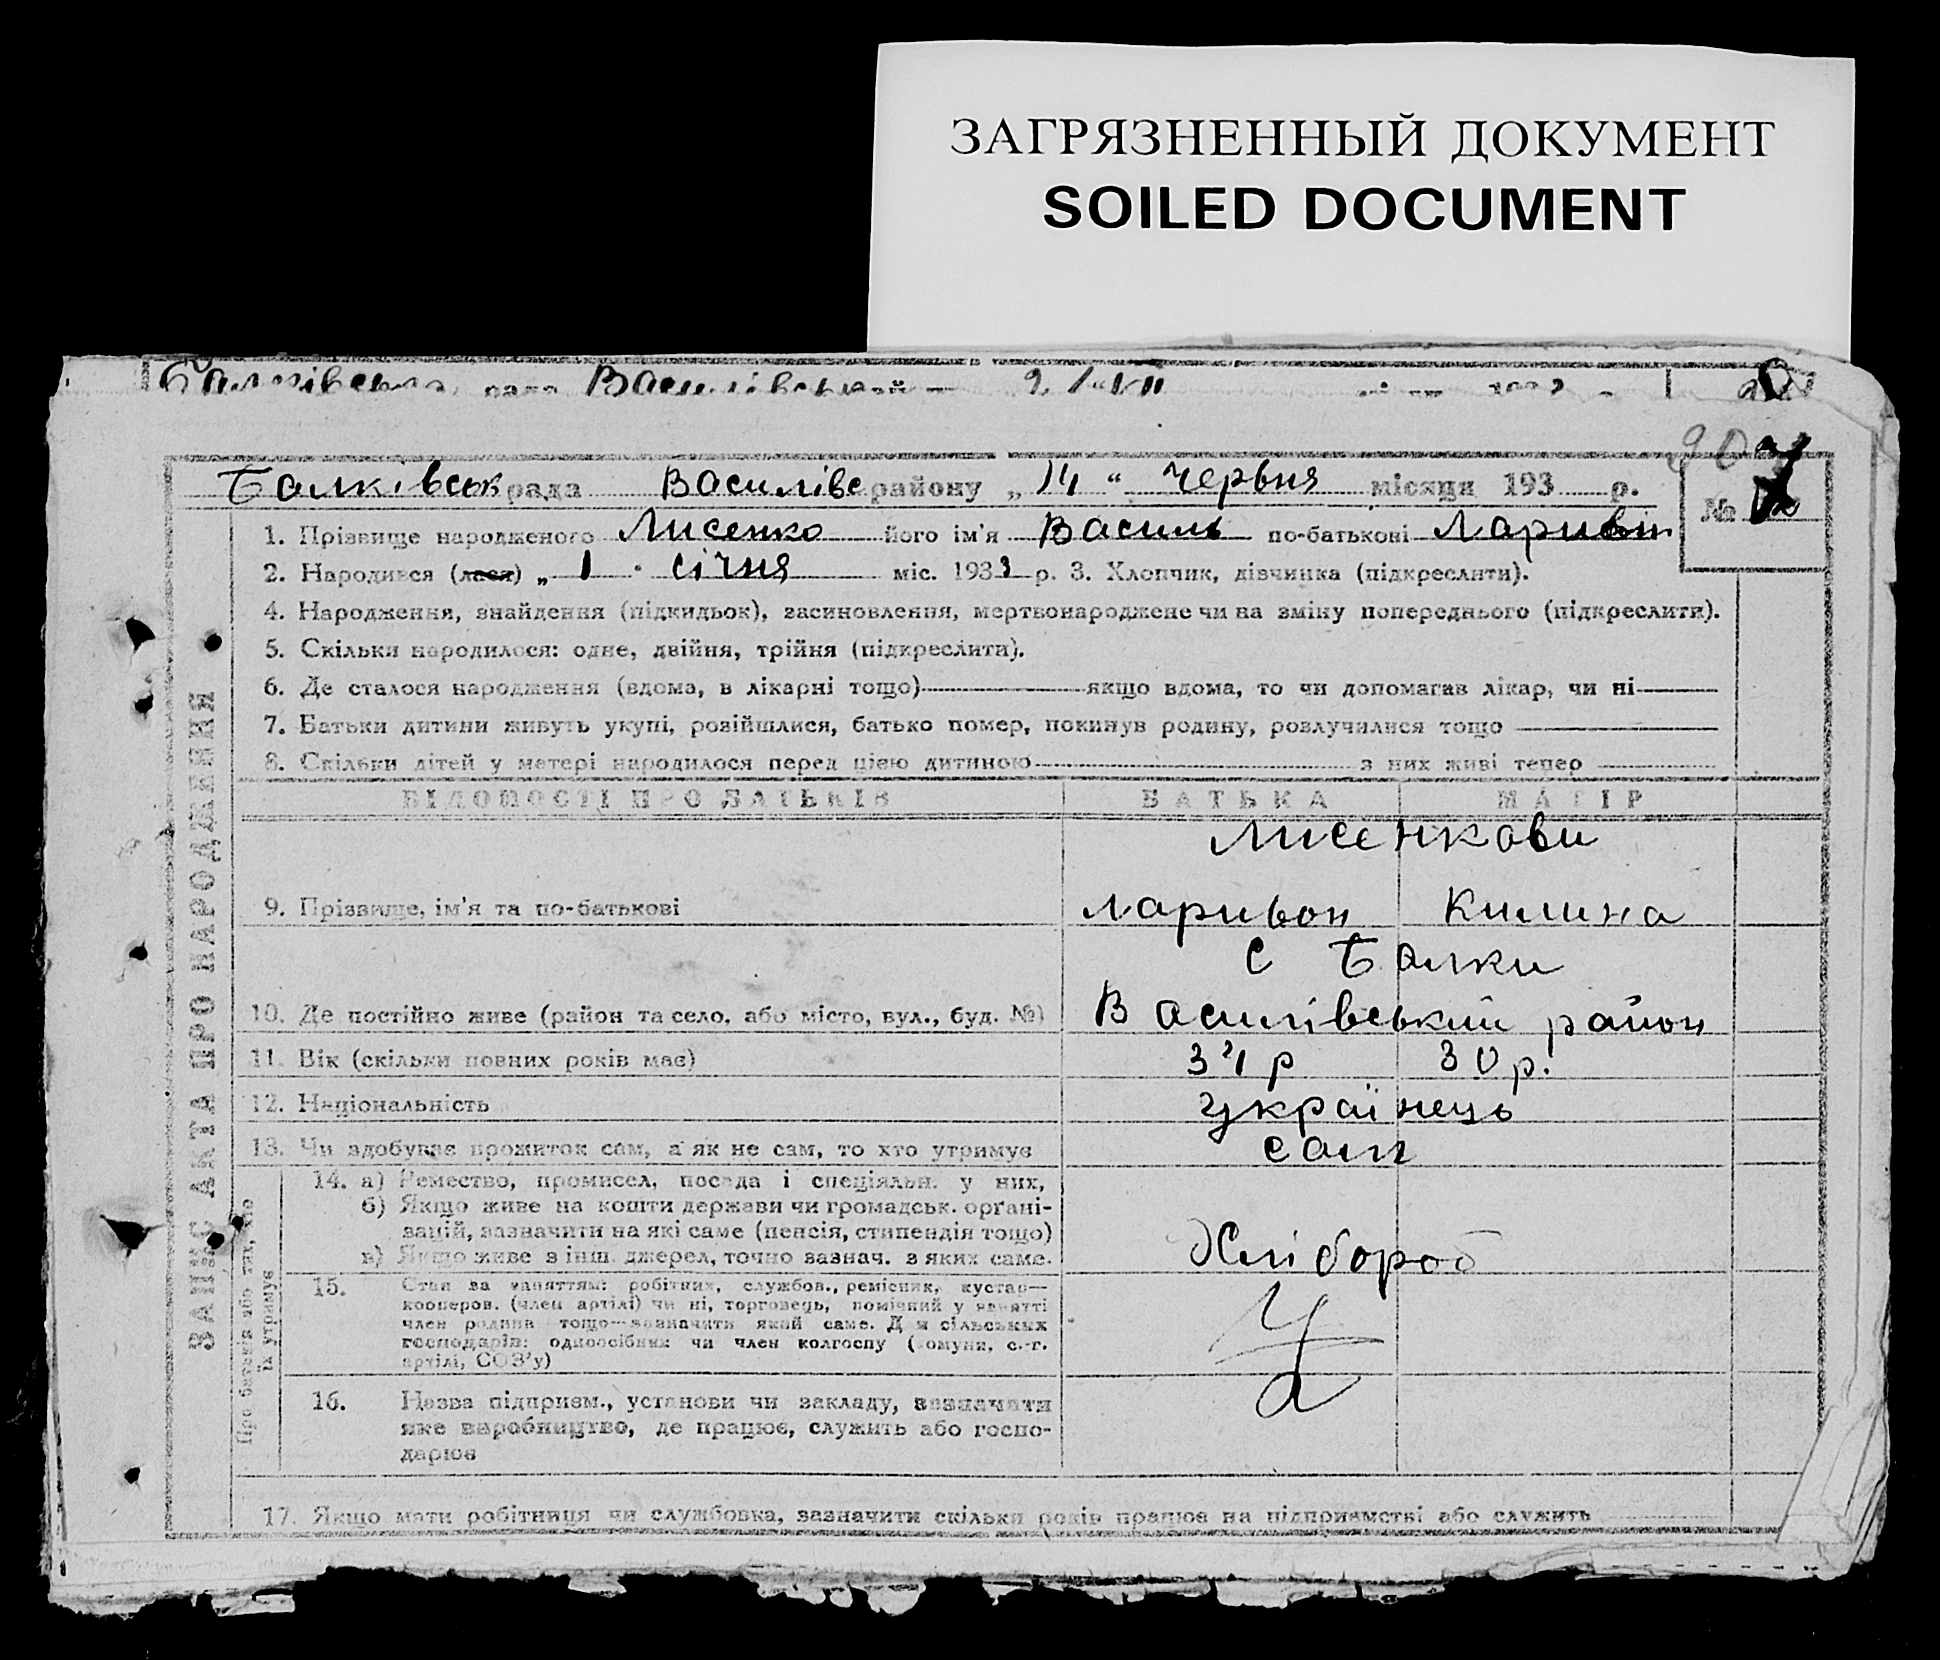 ЗАГРЯЗНЕННЫЙ ДОКУМЕНТ
SOILED DOCUMENT
рада Василівський
Балківськ рада Василівс району „ 14 “ червня місяця 193 р.
№
1. Прізвище народженого Лисенко його ім'я Василь по-батькові Ларивон
2. Народився (лася) „ 1 " січня міс. 1933 р. 3. Хлопчик, дівчинка (підкреслити).
4. Народження, знайдення (підкидьок), засиновлення, мертвонароджене чи на зміну попереднього (підкреслити).
5. Скільки народилося: одне, двійня, трійня (підкреслити).
6. Де сталося народження (вдома, в лікарні тощо) якщо вдома, то чи допомагав лікар, чи ні
7. Батьки дитини живуть укупі, розійшлися, батько помер, покинув родину, розлучилися тощо
8. Скільки дітей у матері народилося перед цією дитиною з них живі тепер
ЗАПИС АКТА ПРО НАРОДЖЕННЯ
ВІДОМОСТІ ПРО БАТЬКІВ БАТЬКА МАТІР
Лисенкови
9. Прізвище, ім'я та по-батькові Ларивон Килина
с Балки
10. Де постійно живе (район та село, або місто, вул., буд. №) Василівський район
11. Вік (скільки повних років має) 34 р 30 р.
12. Національність українець
13. Чи здобуває прожиток сам, а як не сам, то хто утримує сам
Про батьків або тих, хто їх утримує
14. а) Ремество, промисел, посада і спеціяльн. у них,
б) Якщо живе на кошти держави чи громадськ. органі-
зацій, зазначити на які саме (пенсія, стипендія тощо)
в) Якщо живе з інш. джерел, точно зазнач. з яких саме. Хлібороб
15. Стан за заняттям: робітник, службов., ремісник, кустар—
кооперов. (член артілі) чи ні, торговець, помічний у занятті
член родини тощо—зазначити який саме. Для сільських
господарів: одноосібник чи член колгоспу (комуни, с.-г.
артілі, СОЗ'у)
16. Назва підприєм., установи чи закладу, зазначити
яке виробництво, де працює, служить або госпо-
дарює
17. Якщо мати робітниця чи службовка, зазначити скільки років працює на підприємстві або служить